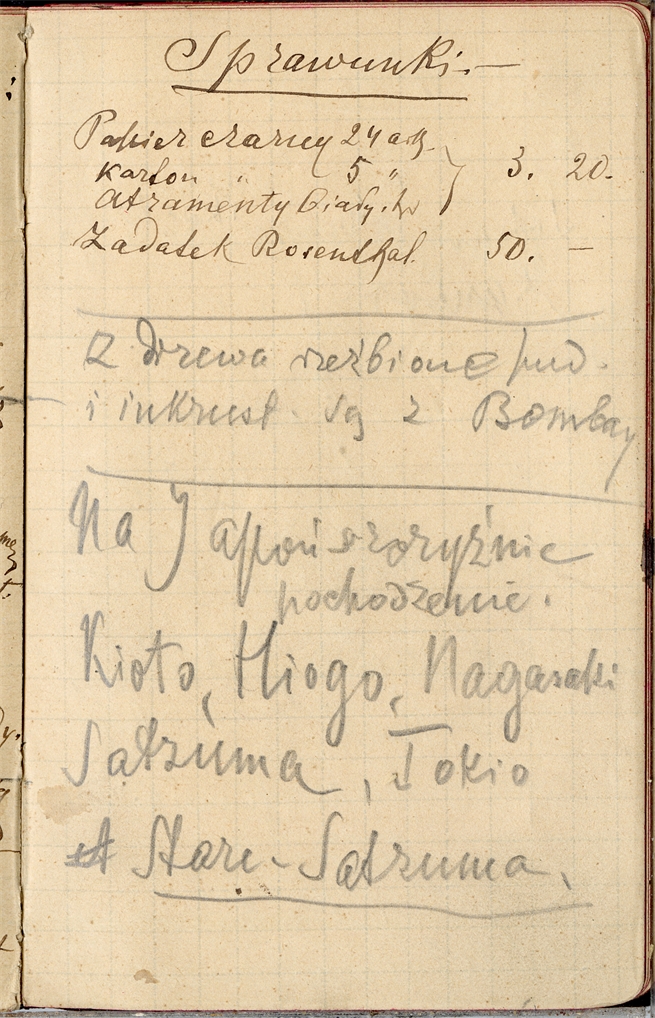 Sprawunki.—
Papier czarny 24 ark.
karton " 5 " } 3. 20.
atramenty biały
Zadatek Rosenthal. 50. —
Z drzewa rzeźbione pud.
i inkrust. są z Bombay
Na Japońszczyźnie
pochodzenie.
Kioto, Hiogo, Nagasaki
Satzuma, Tokio
Stare-Satzuma,